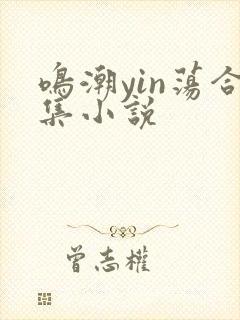 鳴潮yin蕩合
集小說
曾志權